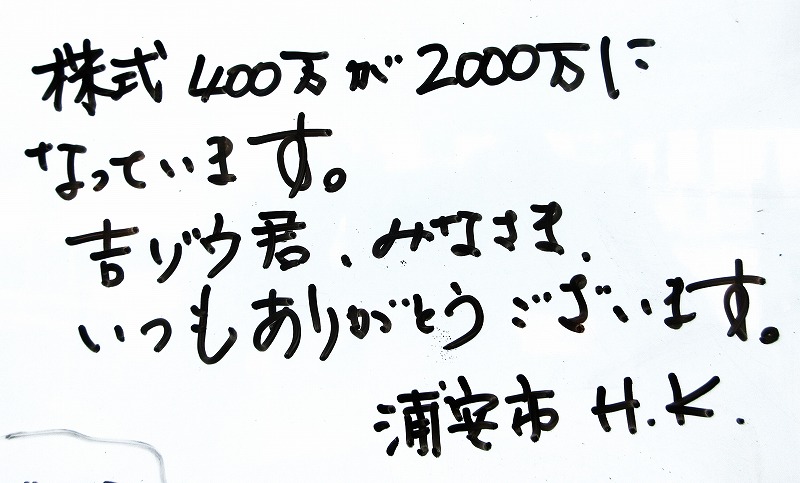 株式400万が2000万に
なっています。
吉ゾウ君、みなさま、
いつもありがとうございます。
浦安市 H.K.